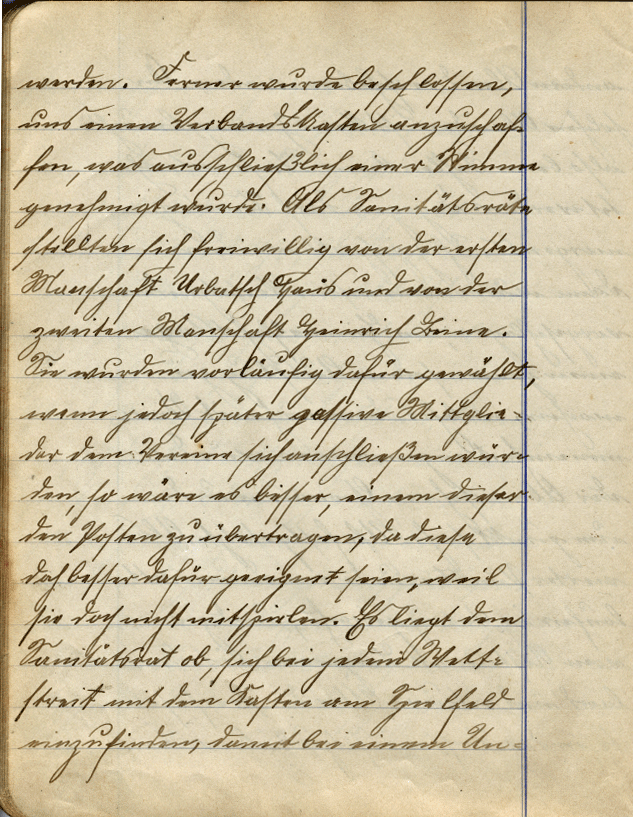 werden. Ferner wurde beschlossen,
uns einen Verbandskasten anzuschaf-
fen, was ausschließlich einer Stimme
genehmigt wurde. Als Sanitätsräte
stellten sich freiwillig von der ersten
Manschaft Urbatsch Hans und von der
zweiten Manschaft Heinrich Beine.
Sie wurden vorläufig dafür gewählt,
wenn jedoch später passive Mittglie-
der dem Vereine sich anschließen wür-
den, so wäre es besser, einem dieser
den Posten zu übertragen, da diese
doch besser dafür geeignet seien, weil
sie doch nicht mitspielen. Es liegt dem
Sanitätsrat ob, sich bei jedem Wett-
streit mit dem Kasten am Spielfeld
einzufinden, damit bei einem Un-